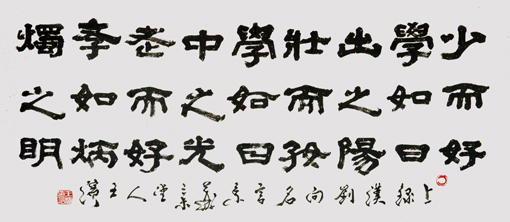 少而好
學如日
出之陽
壯而好
學如日
中之光
老而好
斈如炳
燭之明
上錄漢劉向名言